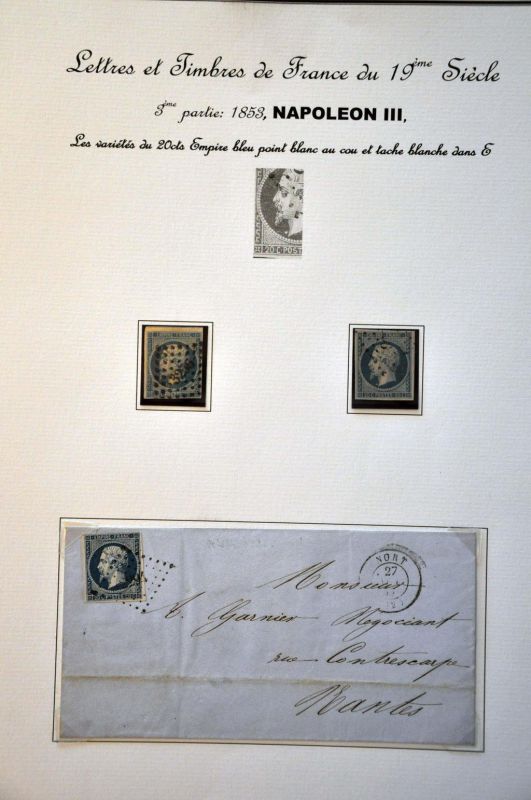 Lettres et Timbres de France du 19ème Siècle
3ème partie: 1853, NAPOLEON III,
Les variétés du 20cts Empire bleu point blanc au cou et tache blanche dans E
20 C POST
EMPIRE FRANC
EMPIRE FRANC
NORT
27
Monsieur
Garnier Négociant
rue Contrescarpe
Nantes